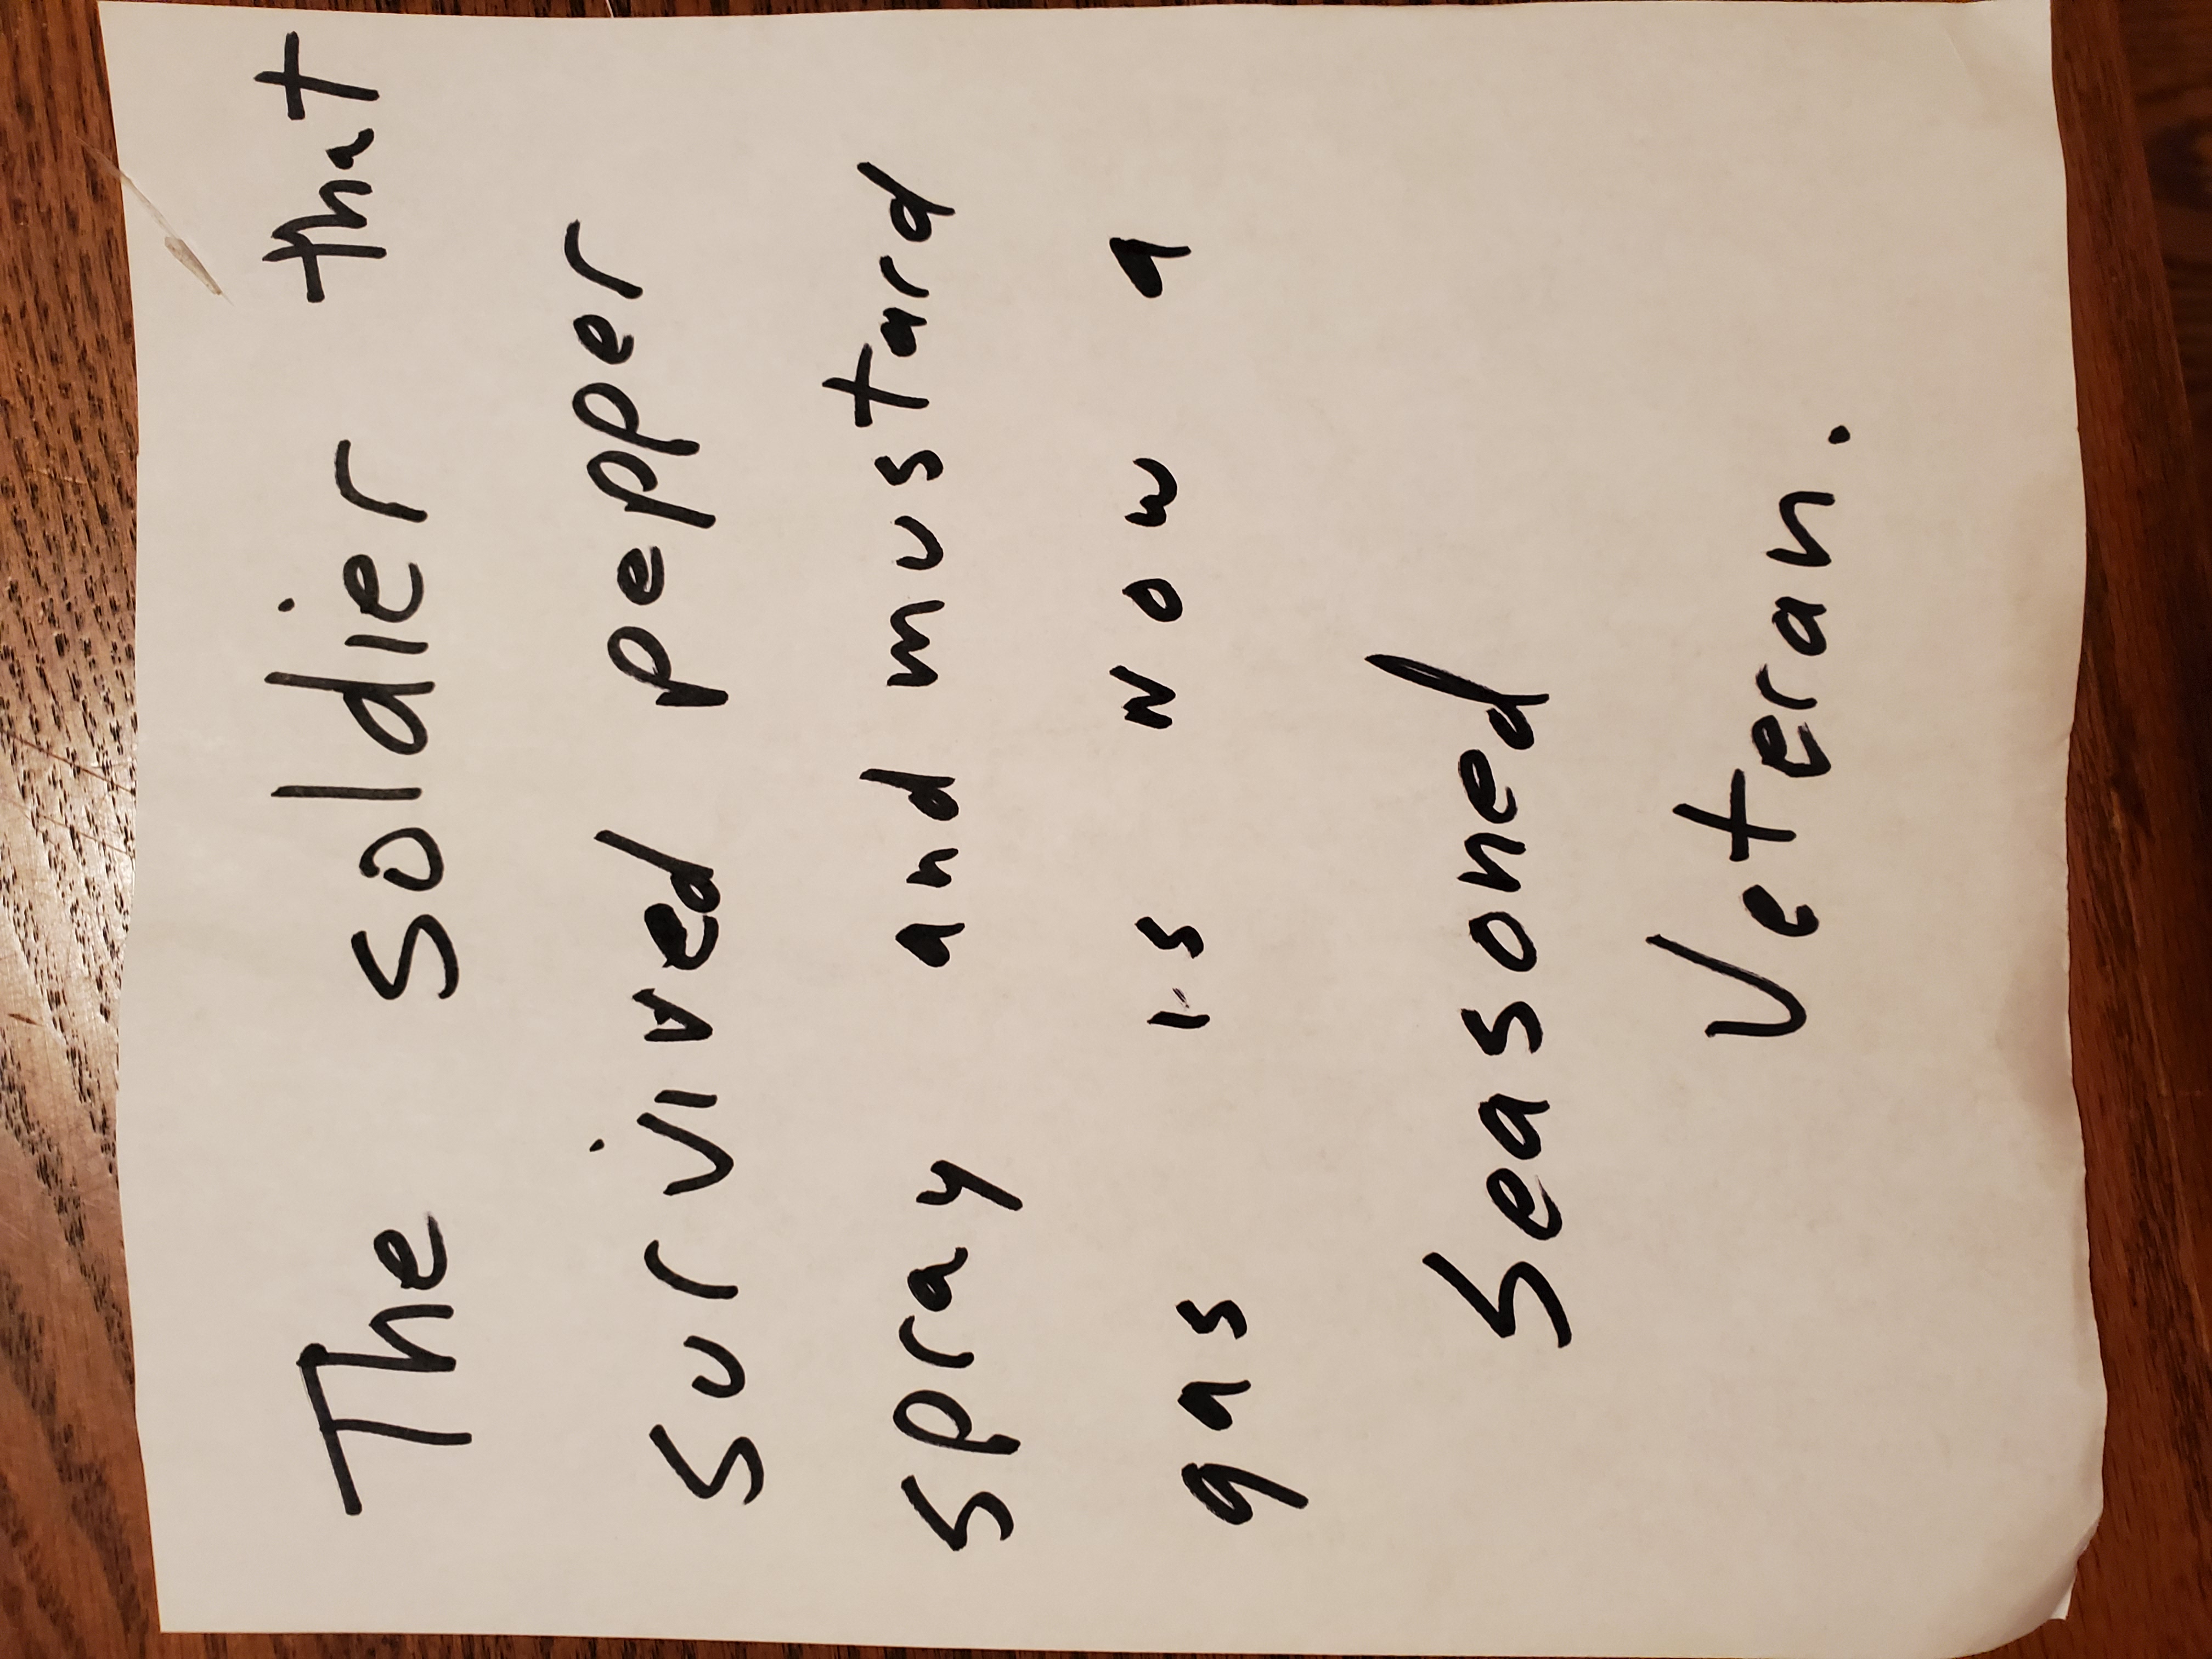 The soldier that
survived pepper
spray and mustard
gas is now a
seasoned
Veteran.